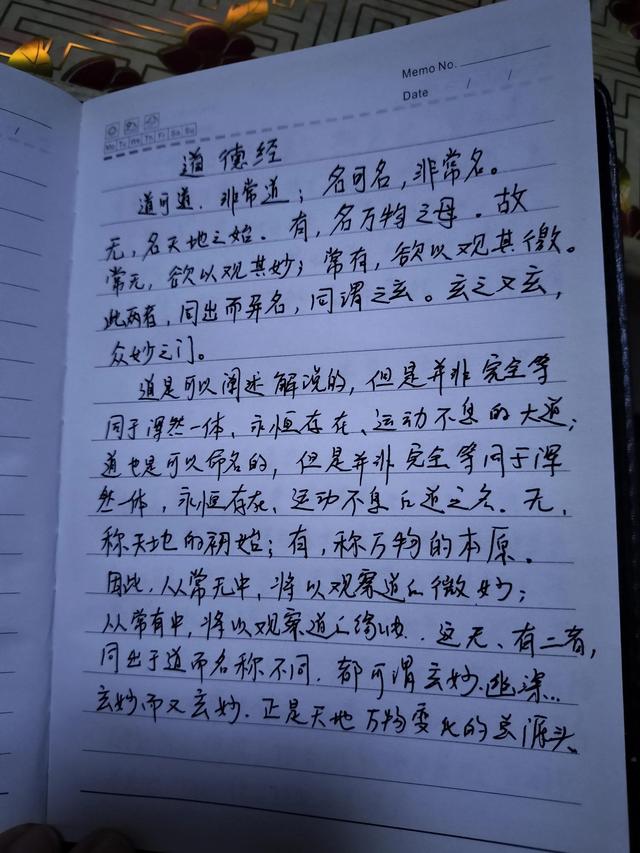 Memo No.
Date / /
Mo Tu We Th Fr Sa Su
道德经
道可道,非常道;名可名,非常名。
无,名天地之始。有,名万物之母。故
常无,欲以观其妙;常有,欲以观其徼。
此两者,同出而异名,同谓之玄。玄之又玄,
众妙之门。
道是可以阐述解说的,但是并非完全等
同于浑然一体、永恒存在、运动不息的大道;
道也是可以命名的,但是并非完全等同于浑
然一体,永恒存在、运动不息的道之名。无,
称天地的初始;有,称万物的本原。
因此,从常无中,将以观察道的微妙;
从常有中,将以观察道的缘由。这无、有二者,
同出于道而名称不同,都可谓玄妙、幽深。
玄妙而又玄妙,正是天地万物变化的总源头。